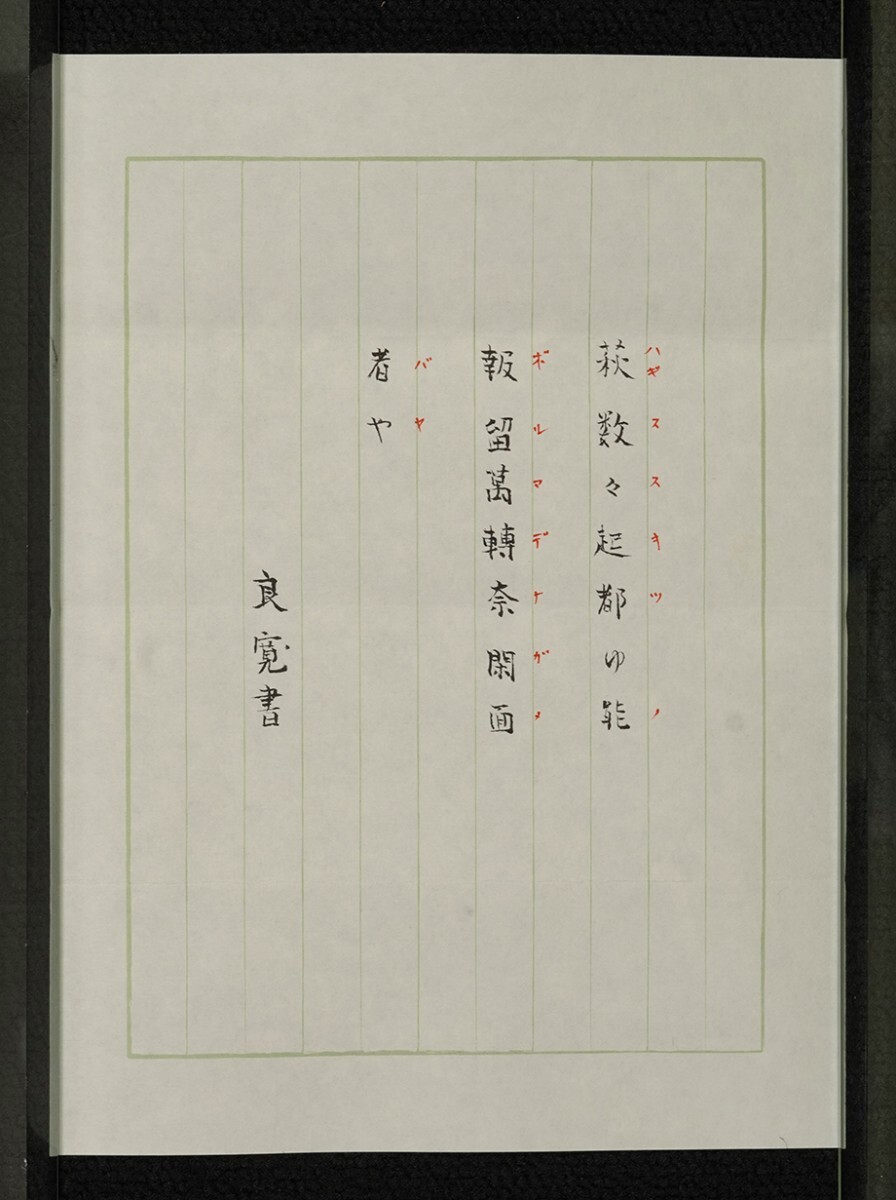 萩数々起都ゆ能
ハギススキツノ
報留萬轉奈閑面
ボルマデナガメ
者や
バヤ
良寛書